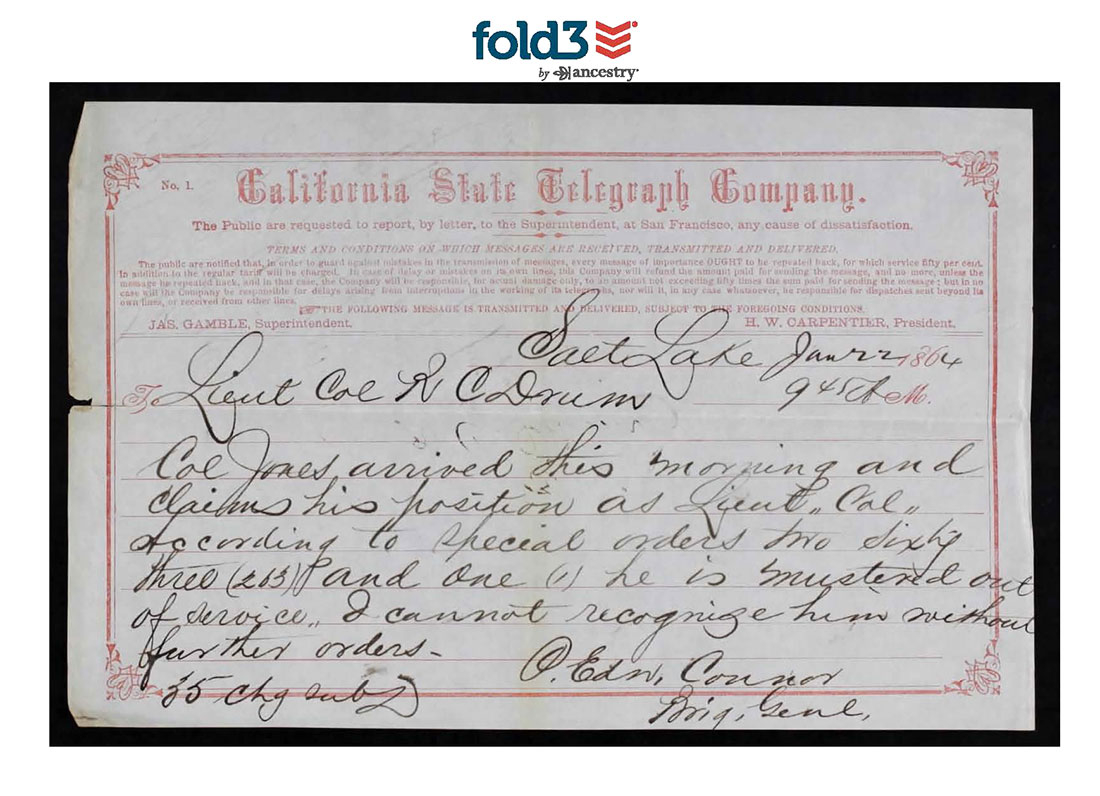 fold3
by ancestry
No. 1.
California State Telegraph Company.
The Public are requested to report, by letter, to the Superintendent, at San Francisco, any cause of dissatisfaction.
TERMS AND CONDITIONS ON WHICH MESSAGES ARE RECEIVED, TRANSMITTED AND DELIVERED.
The public are notified that, in order to guard against mistakes in the transmission of messages, every message of importance OUGHT to be repeated back, for which service fifty per cent.
In addition to the regular tariff will be charged. In case of delay or mistakes on its own lines, this Company will refund the amount paid for sending the message, and no more, unless the
message be repeated back, and in that case, the Company will be responsible, for actual damage only, to an amount not exceeding fifty times the sum paid for sending the message; but in no
case will the Company be responsible for delays arising from interruptions in the working of its telegraphs, nor will it, in any case whatever, be responsible for dispatches sent beyond its
own lines, or received from other lines.
THE FOLLOWING MESSAGE IS TRANSMITTED AND DELIVERED, SUBJECT TO THE FOREGOING CONDITIONS.
JAS. GAMBLE, Superintendent. H. W. CARPENTIER, President,
Salt Lake Jan 22 1864
To Lieut Col R C Drum 9 45 A M.
Col Jones arrived this morning and
claims his position as Lieut,, Col,,
According to special orders two sixty
three (263) and one (1) he is mustered out
of service,, I cannot recognize him without
further orders-
35 chg sub
P. Edw, Connor
Brig, Genl,